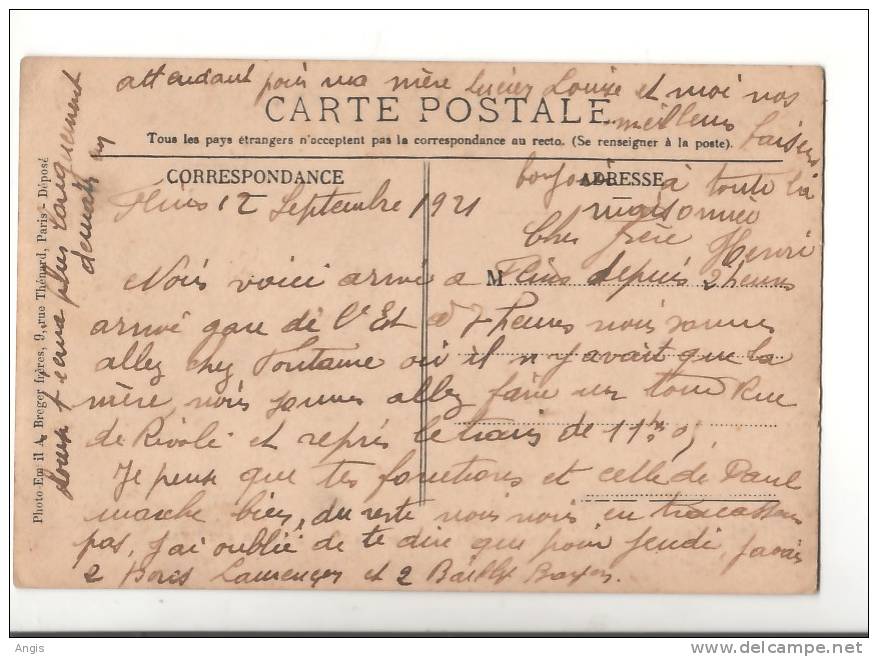 attendant pois ma mère Lucien Louise et moi nos
meilleurs baisers
CARTE POSTALE
Tous les pays étrangers n'acceptent pas la correspondance au recto. (Se renseigner à la poste).
CORRESPONDANCE
ADRESSE
bonjour à toute la
maisonnée
Henri
Flins 12 Septembre 1921
Cher frère
M
Nois voici arrivé a Flins depuis 2 heures
arrivé gare de l'Est a 7 heures nois sommes
allez chez Fontaine où il n'y avait que la
mère, nois sommes allez faire un tour Rue
de Rivoli et repris le train de 11h
Je pense que tes fonctions et celle de Paul
marche bien, du reste nois nois en tracassons
pas, J'ai oublié de te dire que pour Jeudi, J'avais
2 et 2
Louise t'écrira plus longuement
demain en
Photo-Email A. Breger frères, 9, rue Thénard, Paris - Déposé
Angis
www.delcampe.net